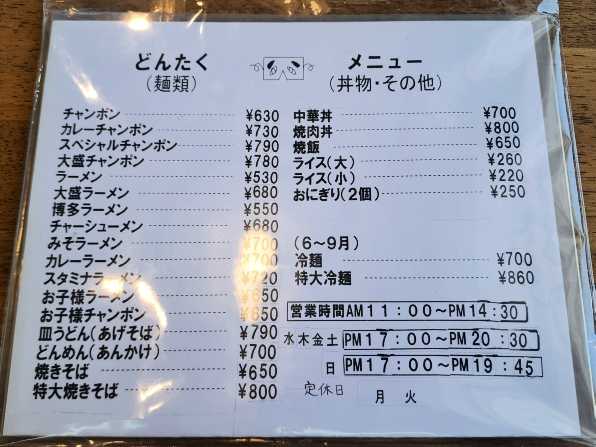 どんたく
(麺類)
チャンポン ¥630
カレーチャンポン ¥730
スペシャルチャンポン ¥790
大盛チャンポン ¥780
ラーメン ¥530
大盛ラーメン ¥680
博多ラーメン ¥550
チャーシューメン ¥680
みそラーメン ¥700
カレーラーメン ¥700
スタミナラーメン ¥720
お子様ラーメン ¥650
お子様チャンポン ¥650
皿うどん(あげそば) ¥790
どんめん(あんかけ) ¥700
焼きそば ¥650
特大焼きそば ¥800
メニュー
(丼物・その他)
中華丼 ¥700
焼肉丼 ¥800
焼飯 ¥650
ライス(大) ¥260
ライス(小) ¥220
おにぎり(2個) ¥250
(6〜9月)
冷麺 ¥700
特大冷麺 ¥860
営業時間AM11:00〜PM14:30
水木金土 PM17:00〜PM20:30
日 PM17:00〜PM19:45
定休日 月 火